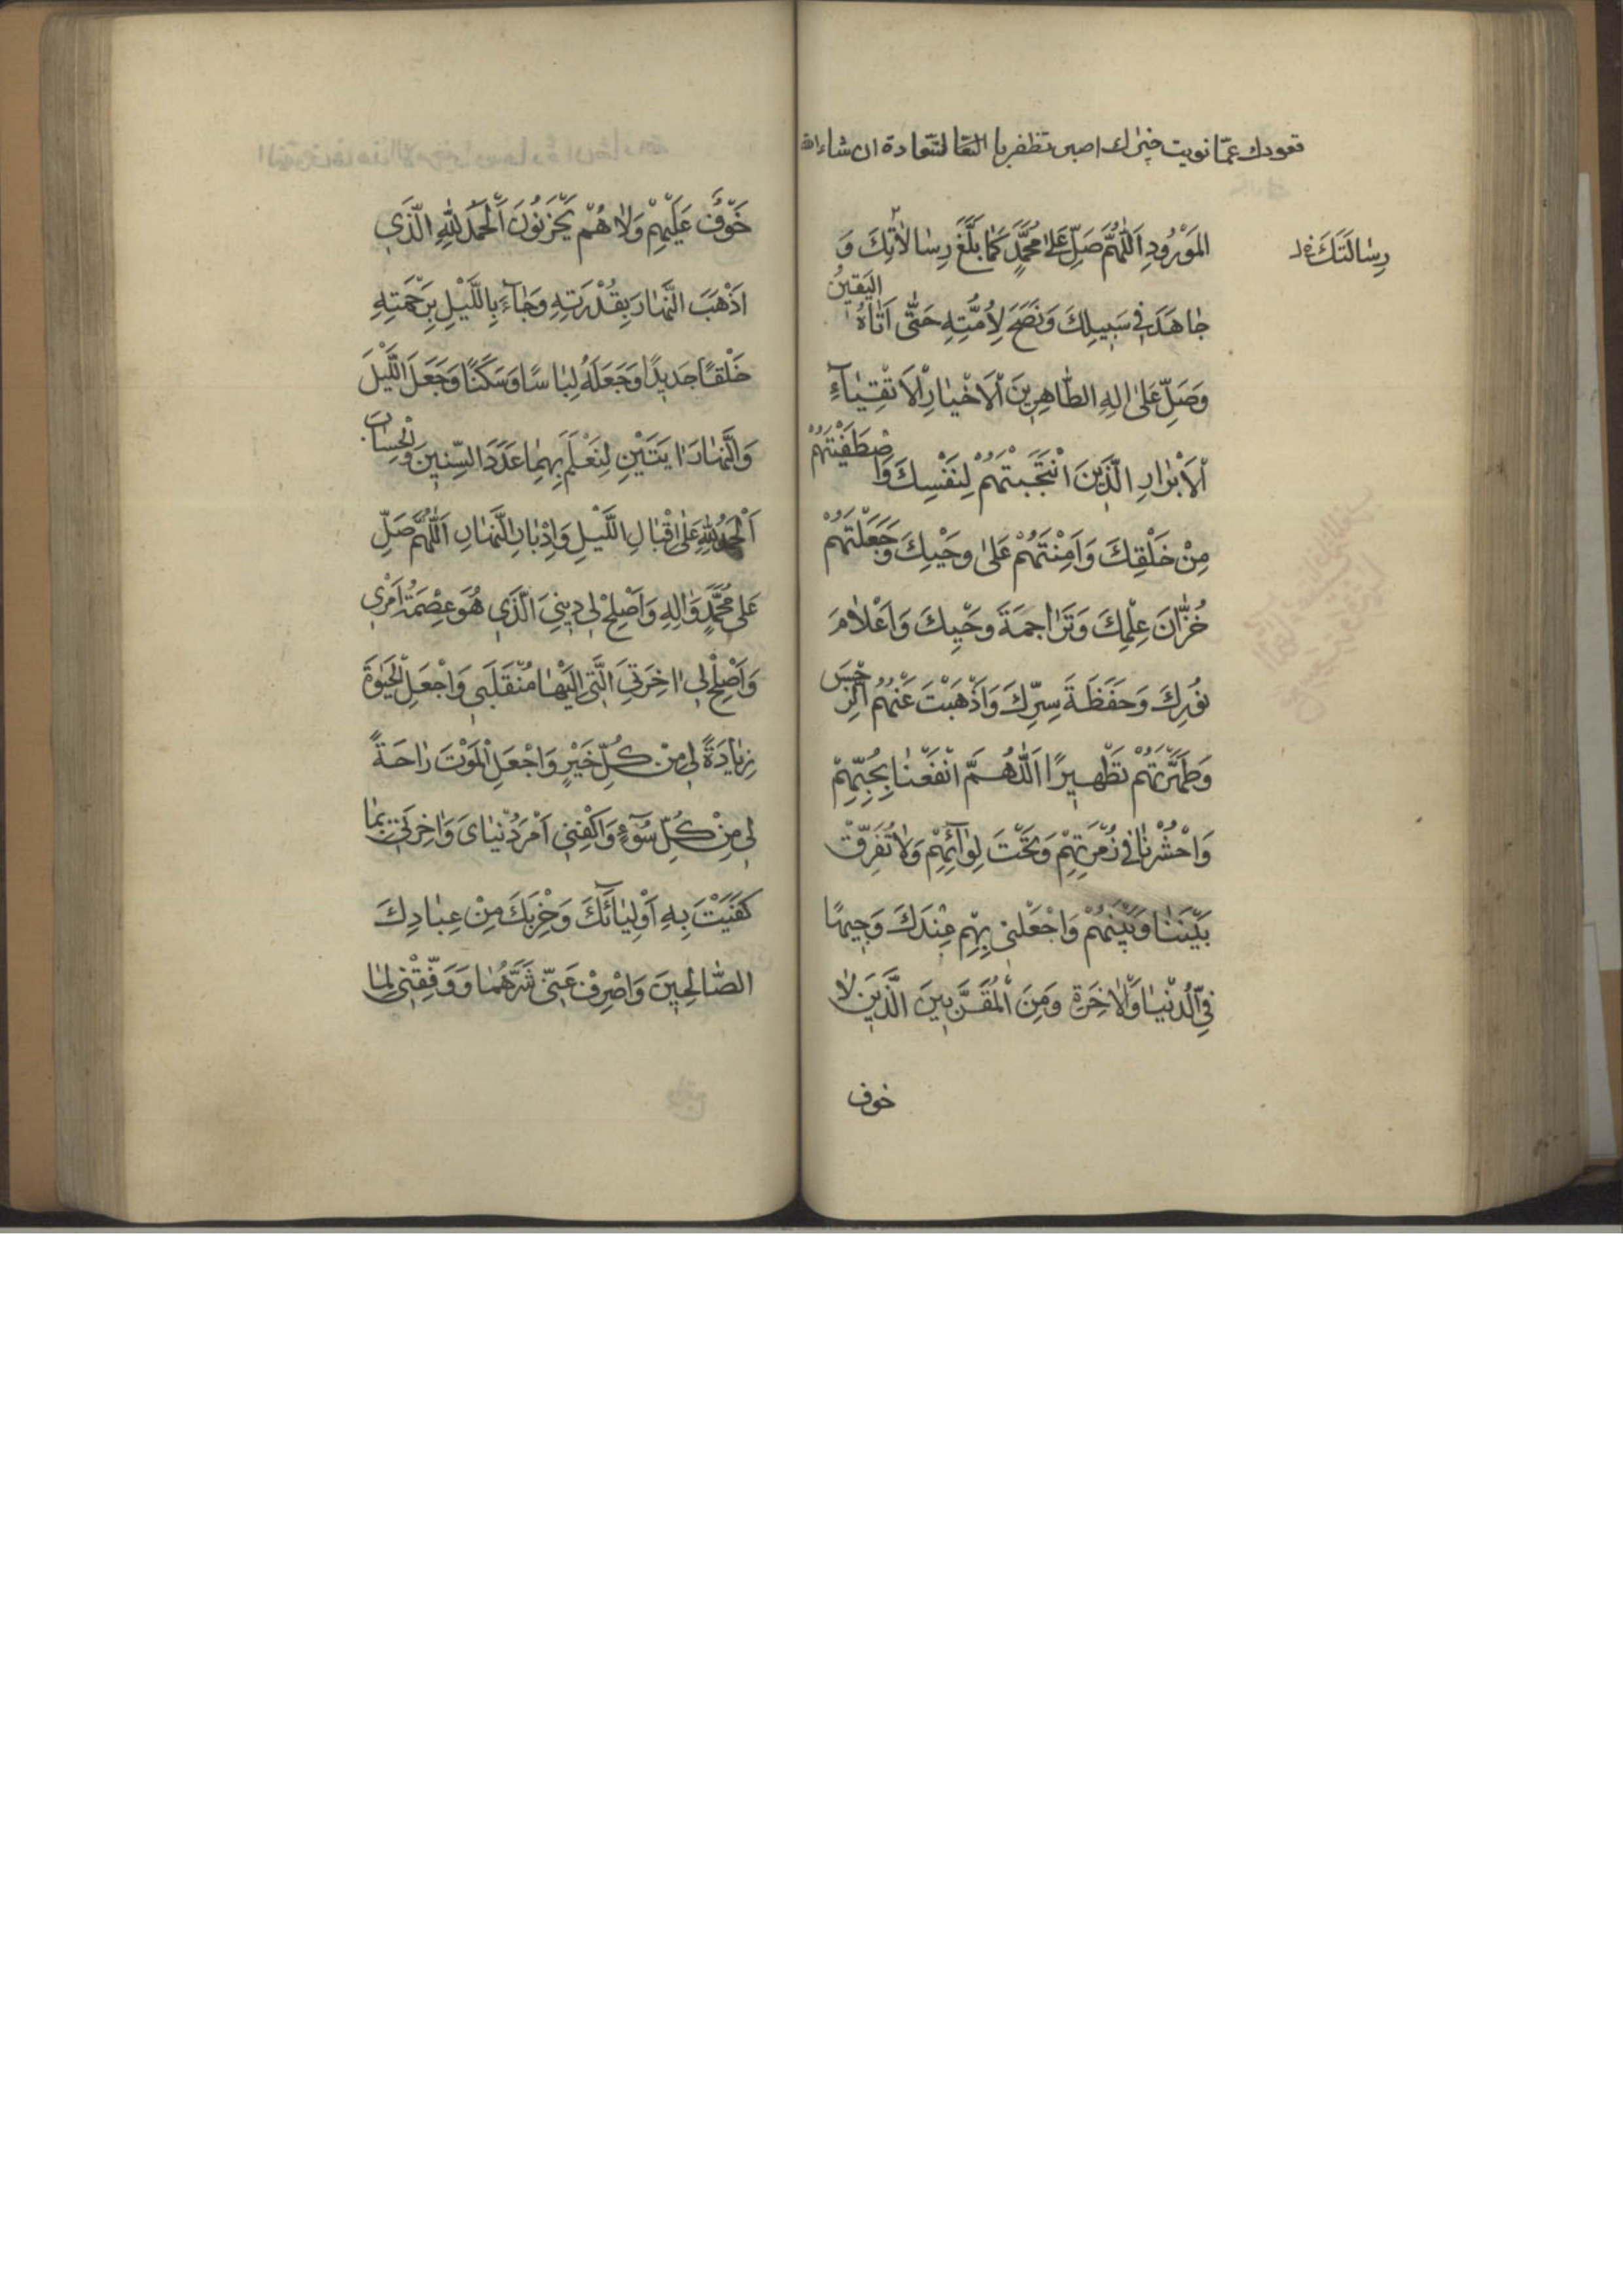 قعودك عمّا نويت خير لك اصبر تظفر بالسّعادة ان شاء الله
رِسٰالَتَكَ
المَوْرُودِ اَللّٰهُمَّ صَلِّ عَلىٰ مُحَمَّدٍ كَمٰا بَلَّغَ رِسٰالاٰتِكَ وَ
جٰاهَدَ فى سَبِيلِكَ وَنَصَحَ لِاُمَّتِهِ حَتّٰى اَتٰاهُ اليَقِينُ
وَصَلِّ عَلىٰ اٰلِهِ الطّٰاهِرِينَ اْلاَخْيٰارِ اْلاَتْقِيٰآءِ
اْلاَبْرٰارِ الَّذِينَ انْتَجَبْتَهُمْ لِنَفْسِكَ وَاصْطَفَيْتَهُمْ
مِنْ خَلْقِكَ وَاَمِنْتَهُمْ عَلىٰ وَحْيِكَ وَجَعَلْتَهُمْ
خُزّٰانَ عِلْمِكَ وَتَرٰاجِمَةَ وَحْيِكَ وَاَعْلاٰمَ
نُورِكَ وَحَفَظَةَ سِرِّكَ وَاَذْهَبْتَ عَنْهُمُ الرِّجْسَ
وَطَهَّرْتَهُمْ تَطْهِيرًا اَللّٰهُمَّ انْفَعْنٰا بِحُبِّهِمْ
وَاحْشُرْنٰا فى زُمْرَتِهِمْ وَتَحْتَ لِوٰآئِهِمْ وَلاٰ تُفَرِّقْ
بَيْنَنٰا وَبَيْنَهُمْ وَاجْعَلْنى بِهِمْ عِنْدَكَ وَجِيهًا
فِى الدُّنْيٰا وَاْلاٰخِرَةِ وَمِنَ الْمُقَرَّبِينَ الَّذِينَ لاٰ
خوف
خَوْفٌ عَلَيْهِمْ وَلاٰ هُمْ يَحْزَنُونَ اَلْحَمْدُ لِلّٰهِ الَّذِى
اَذْهَبَ النَّهٰارَ بِقُدْرَتِهِ وَجٰآءَ بِاللَّيْلِ بِرَحْمَتِهِ
خَلْقًا جَدِيدًا وَجَعَلَهُ لِبٰاسًا وَسَكَنًا وَجَعَلَ اللَّيْلَ
وَالنَّهٰارَ اٰيَتَيْنِ لِنَعْلَمَ بِهِمٰا عَدَدَ السِّنِينَ وَالْحِسٰابَ
اَلْحَمْدُ لِلّٰهِ عَلىٰ اِقْبٰالِ اللَّيْلِ وَاِدْبٰارِ النَّهٰارِ اَللّٰهُمَّ صَلِّ
عَلىٰ مُحَمَّدٍ وَاٰلِهِ وَاَصْلِحْ لى دِينِىَ الَّذِى هُوَ عِصْمَةُ اَمْرِى
وَاَصْلِحْ لى اٰخِرَتِىَ الَّتى اِلَيْهٰا مُنْقَلَبى وَاجْعَلِ الْحَيٰوةَ
زِيٰادَةً لى مِنْ كُلِّ خَيْرٍ وَاجْعَلِ الْمَوْتَ رٰاحَةً
لى مِنْ كُلِّ سُوٓءٍ وَاكْفِنى اَمْرَ دُنْيٰاىَ وَاٰخِرَتى بِمٰا
كَفَيْتَ بِهِ اَوْلِيٰآئَكَ وَحِزْبَكَ مِنْ عِبٰادِكَ
الصّٰالِحِينَ وَاصْرِفْ عَنّى شَرَّهُمٰا وَوَفِّقْنى لِمٰا